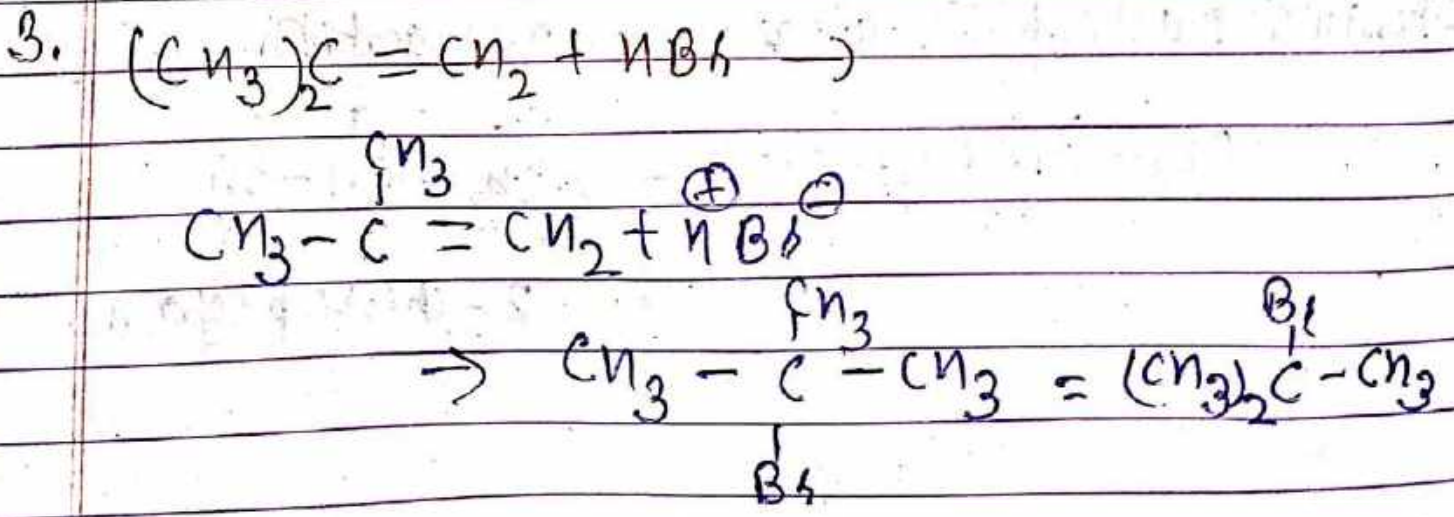 3. (CH3)2C = CH2 + HBr →
CH3
CH3 - C = CH2 + H⊕ Br⊖
CH3 Br
→ CH3 - C - CH3 = (CH3)2C - CH3
Br